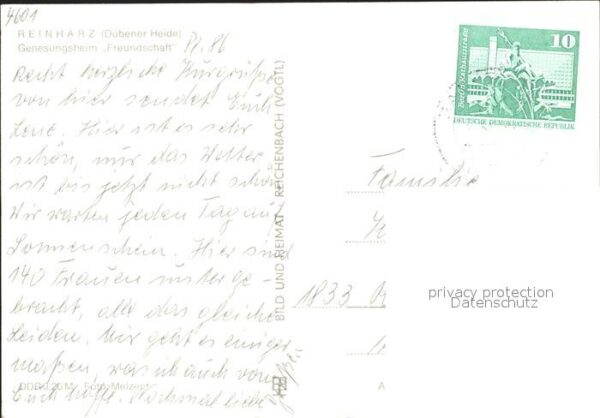 4601
REINHARZ (Dübener Heide)
Genesungsheim „Freundschaft"
86
Recht herzliche Kurgrüße
von hier sendet Euch
Lene. Hier ist es sehr
schön, nur das Wetter
ist bis jetzt nicht schön
Wir warten jeden Tag auf
Sonnenschein. Hier sind
140 Frauen unterge-
bracht, alle das gleiche
Leiden. Mir geht es einiger
maßen, was ich auch von
Euch hoffe. Nochmal liebe
DDR 0,20 M Foto: Melzer
BILD UND HEIMAT REICHENBACH (VOGTL)
10
Berlin, Rathausstraße
DEUTSCHE DEMOKRATISCHE REPUBLIK
Familie
1833
A
privacy protection
Datenschutz